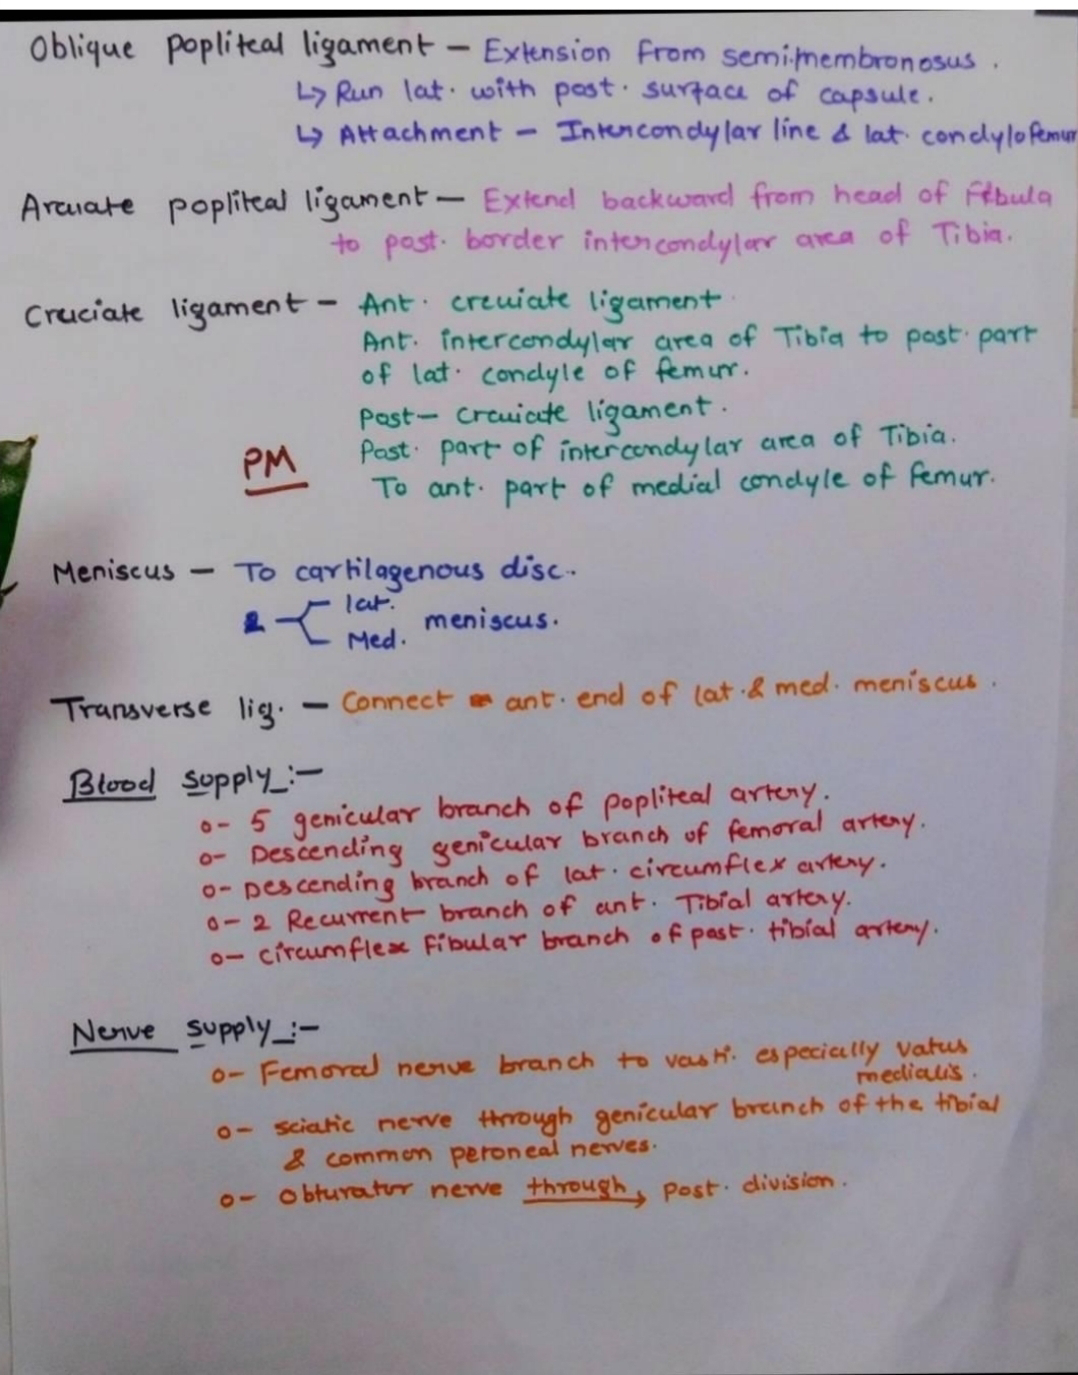 Oblique popliteal ligament – Extension from semimembronosus.
↳ Run lat. with post. surface of capsule.
↳ Attachment – Intercondylar line & lat. condylofemur
Arcuate popliteal ligament – Extend backward from head of Fibula
to post. border intercondylar area of Tibia.
Cruciate ligament – Ant. cruciate ligament
Ant. intercondylar area of Tibia to post. part
of lat. condyle of femur.
Post– Cruciate ligament.
Post. part of intercondylar area of Tibia.
PM To ant. part of medial condyle of femur.
Meniscus – To cartilagenous disc.
2 lat.
Med. meniscus.
Transverse lig. – Connect ant. end of lat. & med. meniscus.
Blood supply :–
o– 5 genicular branch of popliteal artery.
o– Descending genicular branch of femoral artery.
o– Descending branch of lat. circumflex artery.
o– 2 Recurrent branch of ant. Tibial artery.
o– circumflex Fibular branch of post. tibial artery.
Nerve supply :–
o– Femoral nerve branch to vasti. especially vatus
medialis.
o– sciatic nerve through genicular branch of the tibial
& common peroneal nerves.
o– Obturator nerve through, post. division.